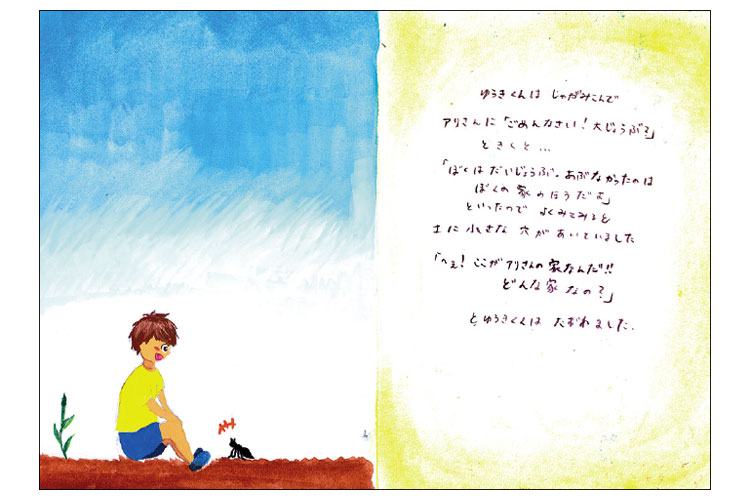 ゆうきくんは じゃがみこんで
アリさんに「ごめんなさい！大じょうぶ？」
ときくと…
「ぼくは だいじょうぶ。あぶなかったのは
ぼくの 家のほうだよ」
といったので よくみてみると
土に 小さな 穴が あいていました
「へぇ！ ここが アリさんの 家なんだ!!
どんな家 なの？」
と ゆうきくんは たずねました.